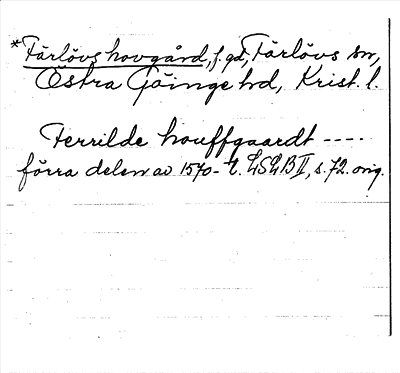 *Färlövs hovgård, f. gd, Färlövs sn,
Östra Göinge hd, Krist. l.
Ferrilde houffgaardt ----
förra delen av 1570-t. LSLB II, s. 72. orig.